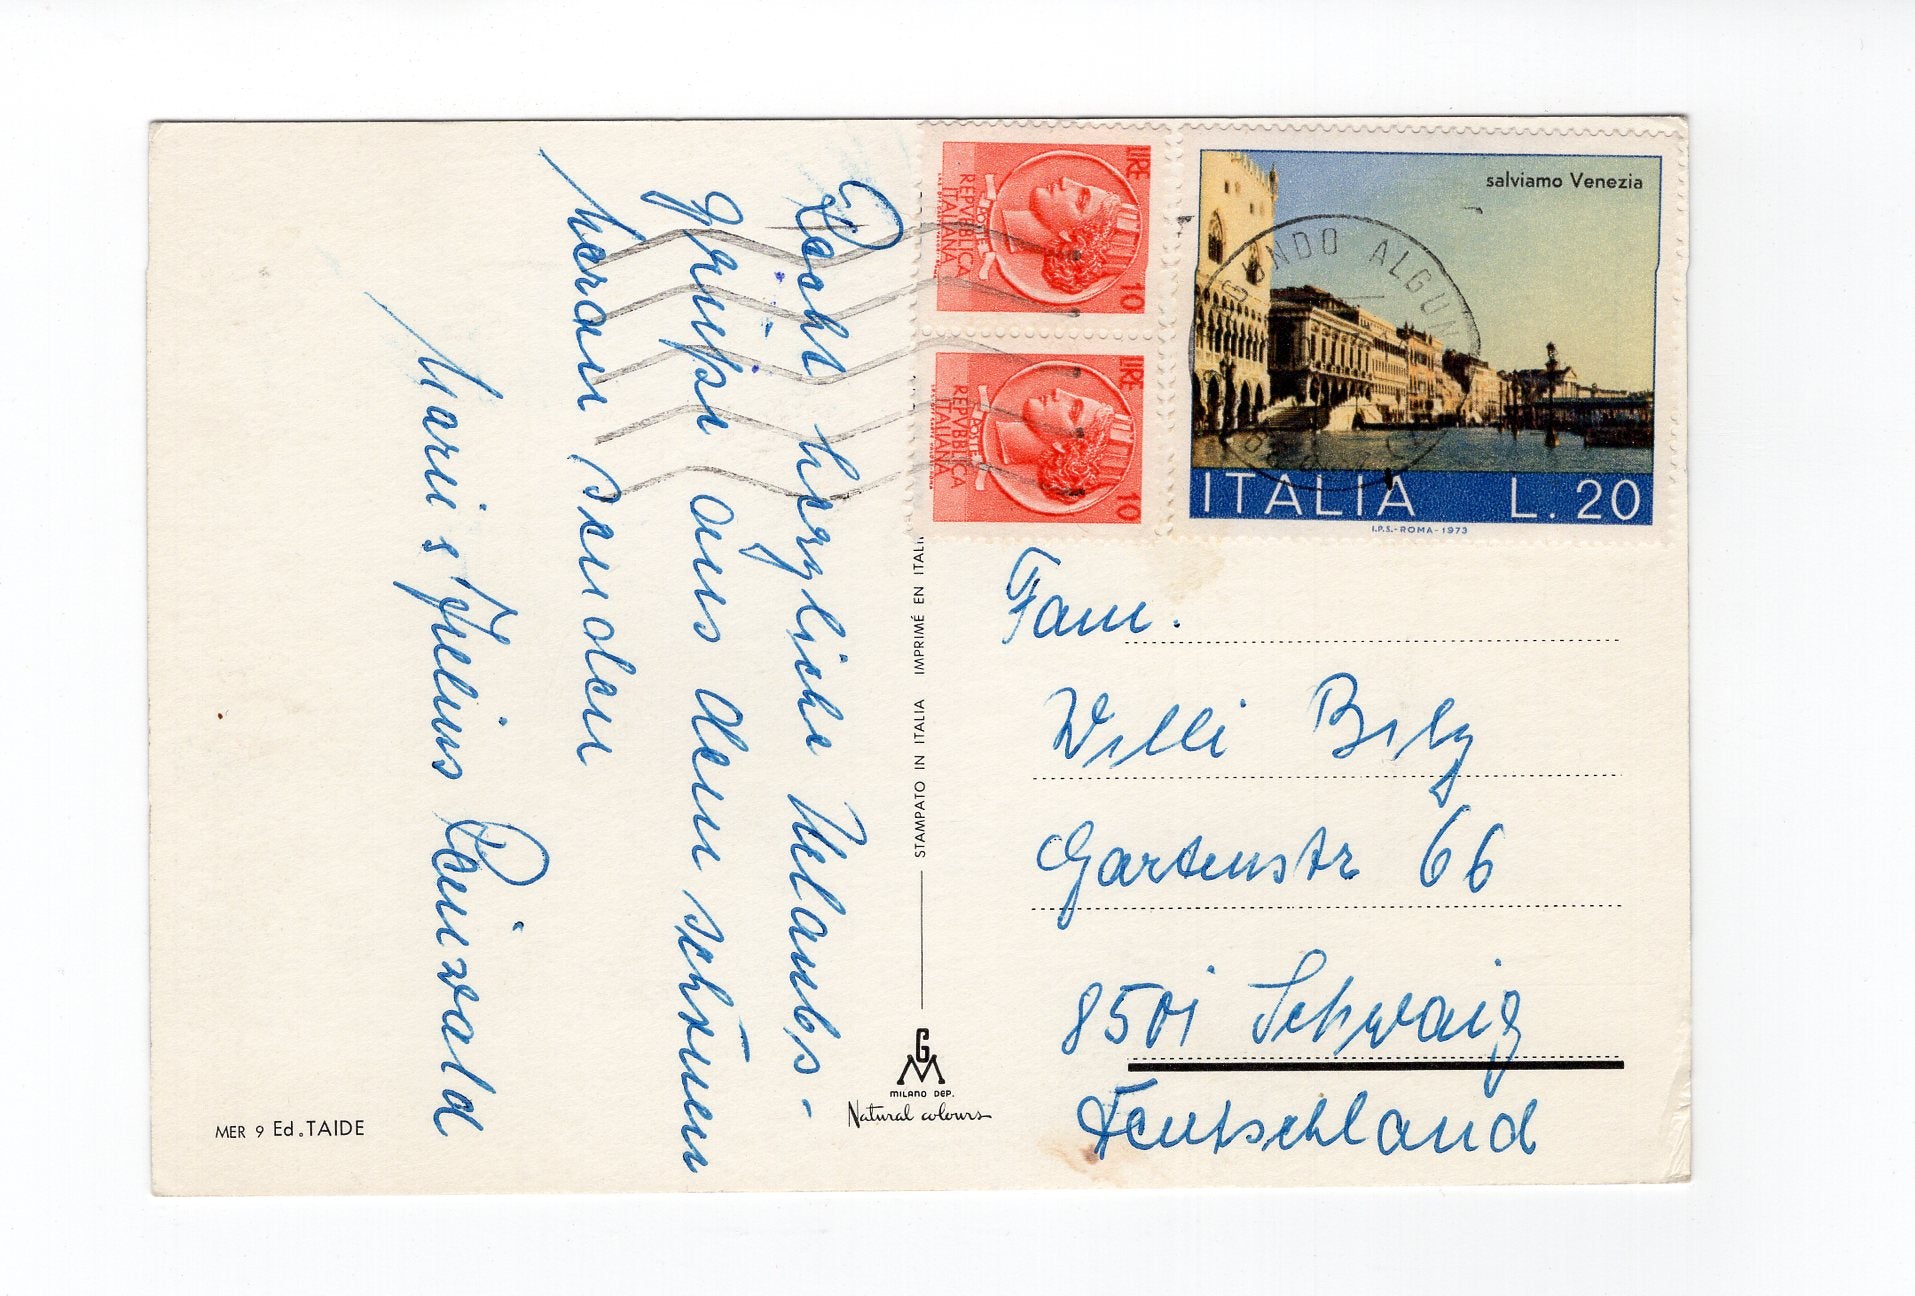 Recht herzliche Urlaubs-
grüße aus dem schönen
Meran senden
Marie u. Julius Pairwald
Fam.
Willi Belz
Gartenstr 66
8501 Schwaig
Deutschland
LIRE 10
REPVBBLICA
ITALIANA
POSTE
LIRE 10
REPVBBLICA
ITALIANA
POSTE
salviamo Venezia
ITALIA L. 20
I.P.S.-ROMA-1973
ONDO ALGUN
STAMPATO IN ITALIA IMPRIMÉ EN ITALI
GM
MILANO DEP.
Natural colours
MER 9 Ed. TAIDE